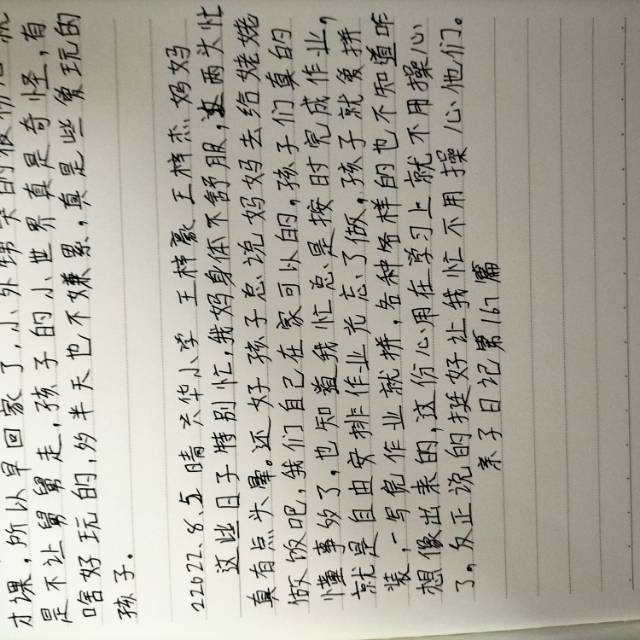 才课，所以早回家了，小外甥
是不让舅舅走，孩子的小世界真是奇怪，有
啥好玩的，多半天也不嫌累，真是些爱玩的
孩子。
22022.8.5 晴 兴华小学 王梓豪 王梓杰妈妈
这些日子特别忙，我妈身体不舒服，这两头忙
真有点头晕。还好孩子总说妈妈去给姥姥
做饭吧，我们自己在家可以的，孩子们真的
懂事多了，也知道我忙总是按时完成作业，
就是自由安排作业光忘了做，孩子就爱拼
装，一写完作业就拼，各种各样的也不知道咋
想像出来的，这份心用在学习上就不用操心
了。反正说的挺好让我忙不用操心他们。
亲子日记第167篇